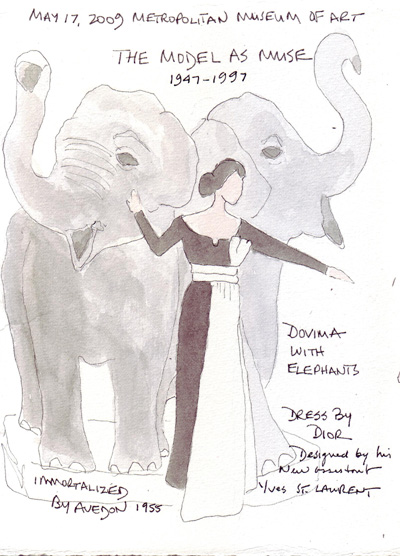 MAY 17, 2009 METROPOLITAN MUSEUM OF ART
THE MODEL AS MUSE
1947-1997
DOVIMA
WITH
ELEPHANTS
DRESS BY
DIOR
Designed by his
New assistant
Yves ST. LAURENT
IMMORTALIZED
BY AVEDON 1955